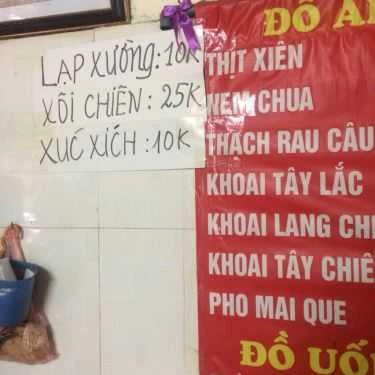 LẠP XƯỜNG: 10K
XÔI CHIÊN: 25K
XUC XICH: 10K
ĐỒ Ă
THỊT XIÊN
NEM CHUA
THẠCH RAU CÂU
KHOAI TÂY LẮC
KHOAI LANG CHI
KHOAI TÂY CHIÊ
PHO MAI QUE
ĐỒ UỐ